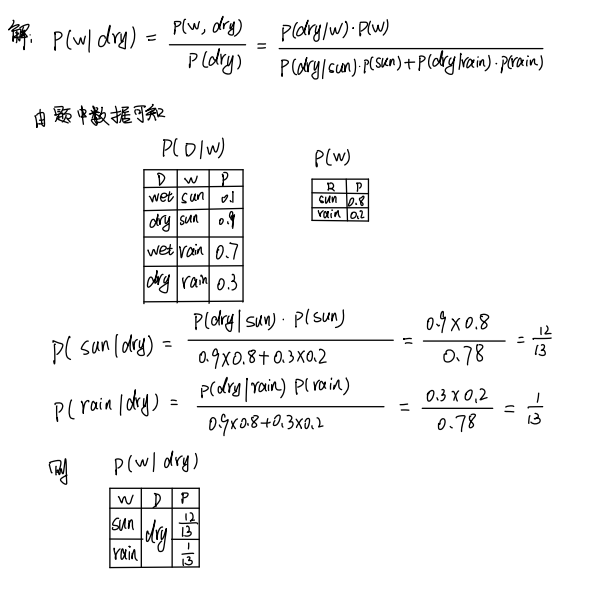 解: P(w|dry) = P(w, dry) / P(dry) = P(dry|w)·P(w) / P(dry|sun)·P(sun)+P(dry|rain)·P(rain)
由题中数据可知
P(D|W)
D W P
wet sun 0.1
dry sun 0.9
wet rain 0.7
dry rain 0.3
P(W)
R P
sun 0.8
rain 0.2
P(sun|dry) = P(dry|sun)·P(sun) / 0.9×0.8+0.3×0.2 = 0.9×0.8 / 0.78 = 12/13
P(rain|dry) = P(dry|rain) P(rain) / 0.9×0.8+0.3×0.2 = 0.3×0.2 / 0.78 = 1/13
则 P(w|dry)
W D P
sun dry 12/13
rain 1/13